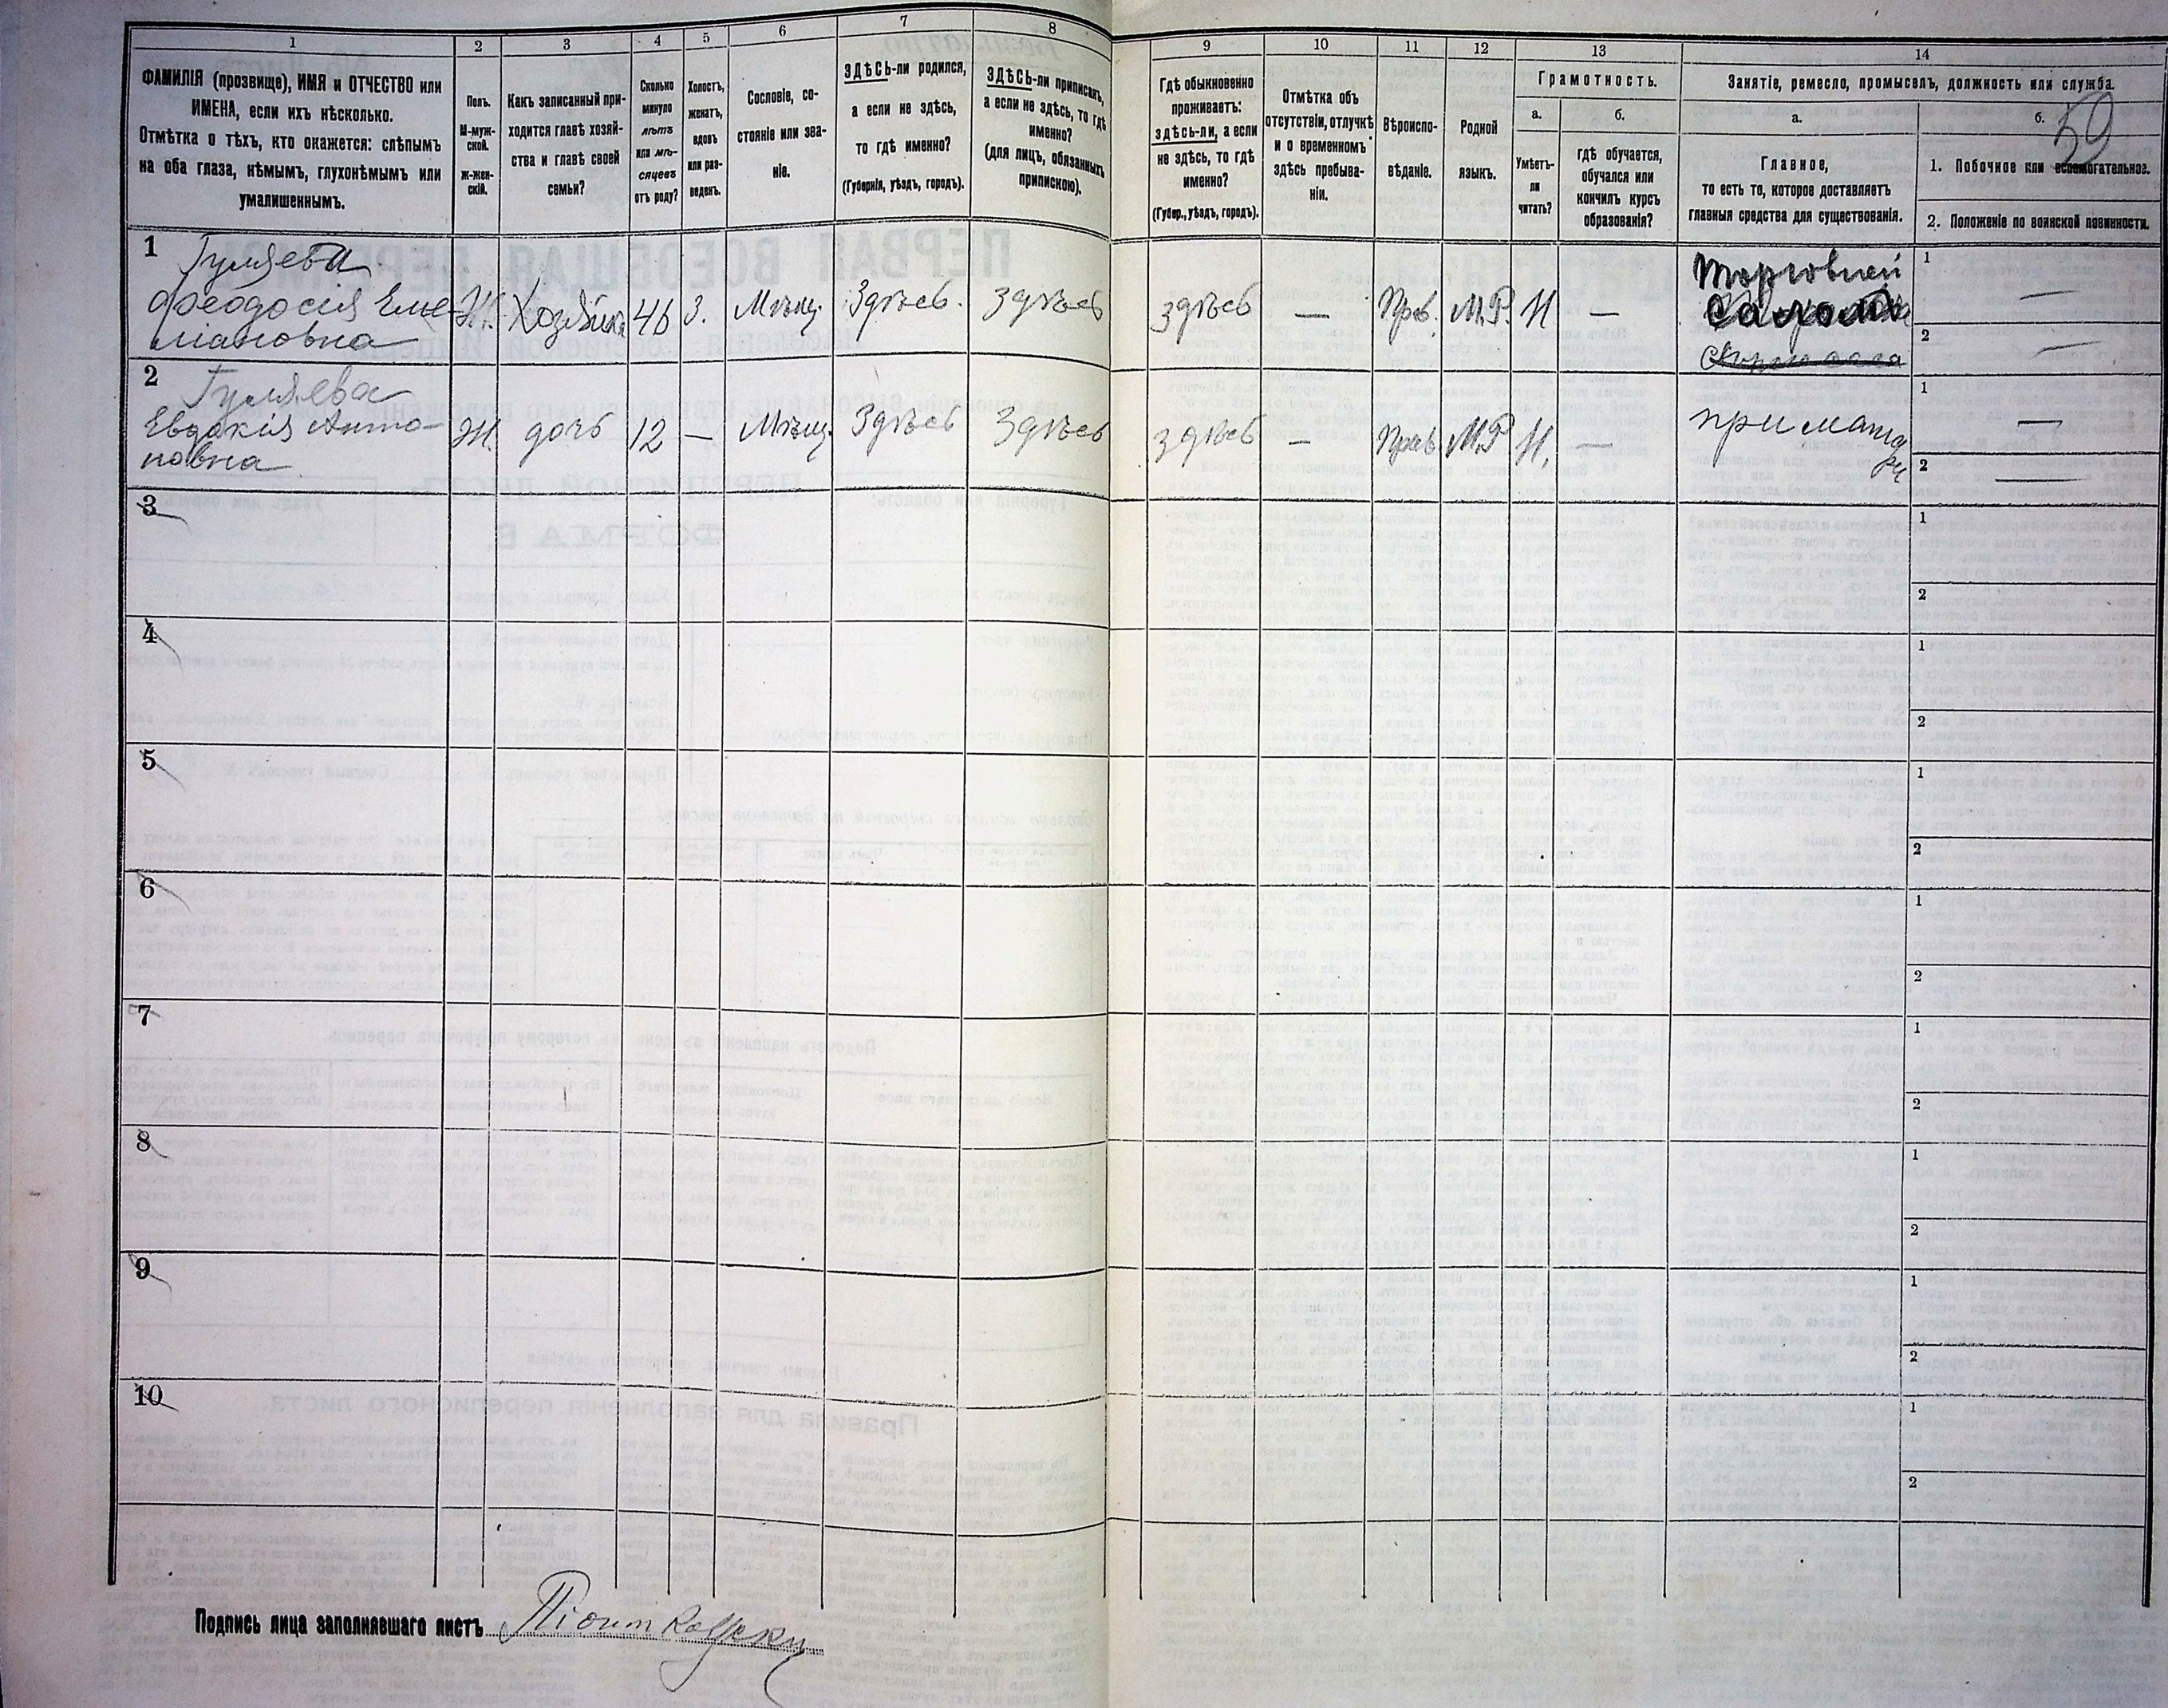 1
2
3
4
5
6
7
8
9
10
11
12
13
14
ФАМИЛІЯ (прозвище), ИМЯ и ОТЧЕСТВО или
ИМЕНА, если ихъ нѣсколько.
Отмѣтка о тѣхъ, кто окажется: слѣпымъ
на оба глаза, нѣмымъ, глухонѣмымъ или
умалишеннымъ.
Полъ.
М-муж-
ской.
ж-жен-
скій.
Какъ записанный при-
ходится главѣ хозяй-
ства и главѣ своей
семьи?
Сколько
минуло
лѣтъ
или мѣ-
сяцевъ
отъ роду?
Холостъ,
женатъ,
вдовъ
или раз-
веденъ.
Сословіе, со-
стояніе или зва-
ніе.
ЗДѢСЬ-ли родился,
а если не здѣсь,
то гдѣ именно?
(Губернія, уѣздъ, городъ).
ЗДѢСЬ-ли приписанъ,
а если не здѣсь, то гдѣ
именно?
(для лицъ, обязанныхъ
припискою).
Гдѣ обыкновенно
проживаетъ:
здѣсь-ли, а если
не здѣсь, то гдѣ
именно?
(Губер., уѣздъ, городъ).
Отмѣтка объ
отсутствіи, отлучкѣ
и о временномъ
здѣсь пребыва-
ніи.
Вѣроиспо-
вѣданіе.
Родной
языкъ.
Грамотность.
а.
Умѣетъ-
ли
читать?
б.
гдѣ обучается,
обучался или
кончилъ курсъ
образованія?
Занятіе, ремесло, промыселъ, должность или служба.
59
а.
Главное,
то есть то, которое доставляетъ
главныя средства для существованія.
б.
1. Побочное или вспомогательное.
2. Положеніе по воинской повинности.
1 Гуляева
Феодосія Еме-
ліановна
Ж. Хозяйка 46 З. Мѣщ. Здѣсь. Здѣсь здѣсь — Прав. М.Р. Н —
Торговлей
1 —
2 —
2 Гуляева
Евдокія Анто-
новна
Ж. дочь 12 — Мѣщ. Здѣсь Здѣсь здѣсь — Прав. М.Р. Н. —
при мате
ри
1 —
2 —
3
1
2
4
1
2
5
1
2
6
1
2
7
1
2
8
1
2
9
1
2
10
1
2
Подпись лица заполнявшаго листъ